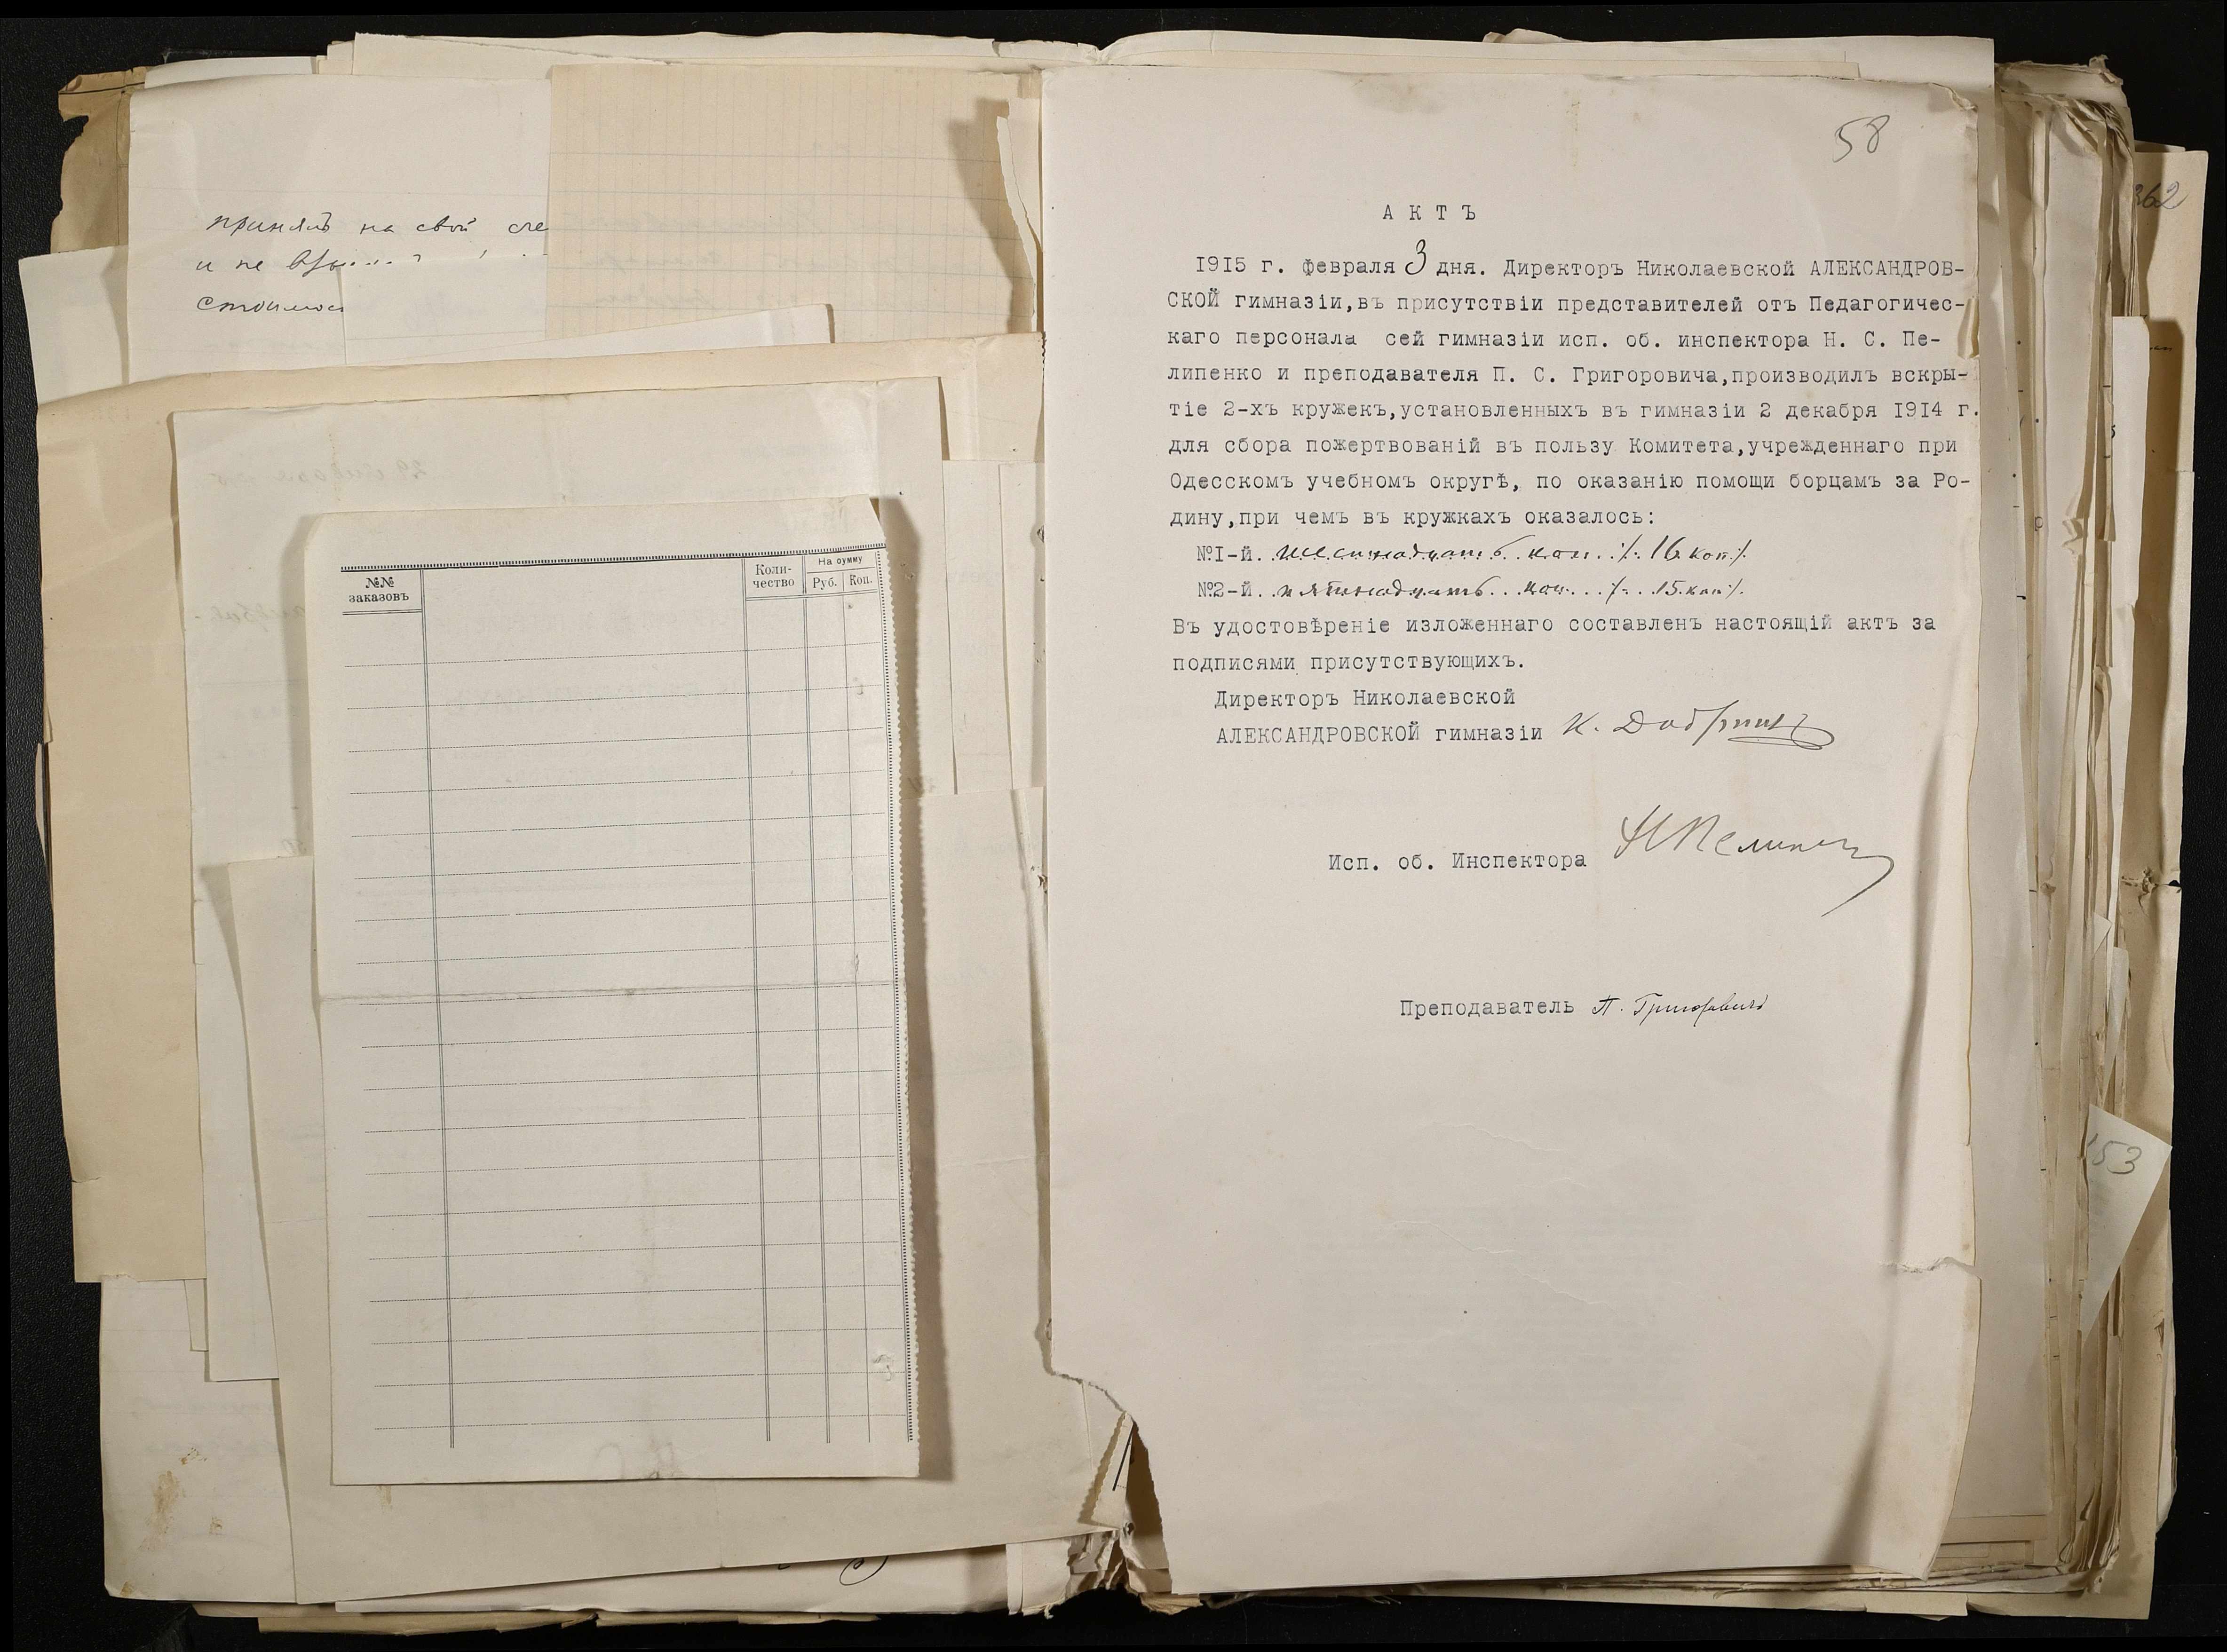 принялъ на свой сче
и не
стоимос
№№ заказовъ
Коли-
чество
На сумму
Руб. Коп.
58
АКТЪ
1915 г. февраля 3 дня. Директоръ Николаевской АЛЕКСАНДРОВ-
СКОЙ гимназіи,въ присутствіи представителей отъ Педагогичес-
каго персонала сей гимназіи исп. об. инспектора Н. С. Пе-
липенко и преподавателя П. С. Григоровича,производилъ вскры-
тіе 2-хъ кружекъ,установленныхъ въ гимназіи 2 декабря 1914 г.
для сбора пожертвованій въ пользу Комитета,учрежденнаго при
Одесскомъ учебномъ округѣ, по оказанію помощи борцамъ за Ро-
дину,при чемъ въ кружкахъ оказалось:
№1-й. шестнадцать коп. /. 16 коп /.
№2-й. пятнадцать коп. /. 15 коп /.
Въ удостовѣреніе изложеннаго составленъ настоящій актъ за
подписями присутствующихъ.
Директоръ Николаевской
АЛЕКСАНДРОВСКОЙ гимназіи К.
Исп. об. Инспектора
Преподаватель П. Григоровичъ
362
153